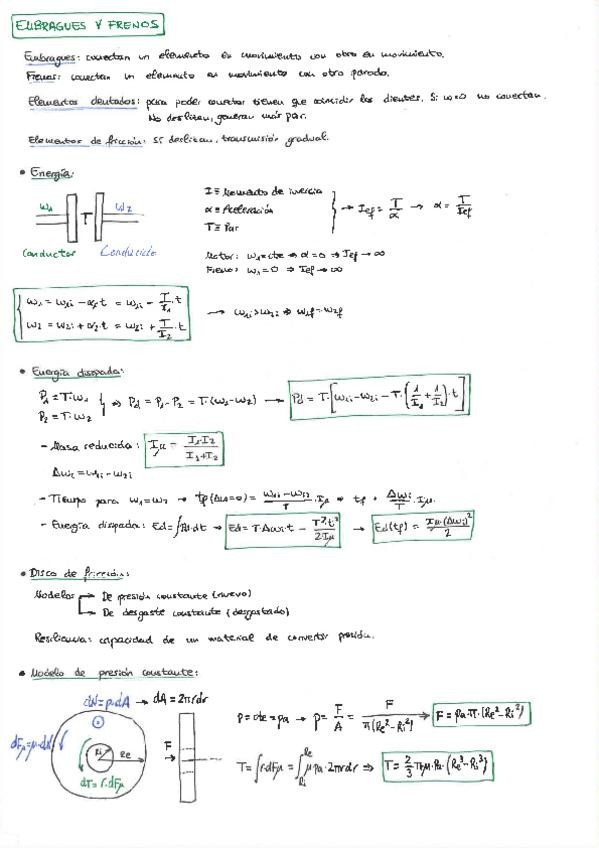 EMBRAGUES Y FRENOS
Embragues: conectan un elemento en movimiento con otro en movimiento.
Frenos: conectan un elemento en movimiento con otro parado.
Elementos dentados: para poder conectar tienen que coincidir los dientes. Si ω≠0 no conectan.
No deslizan, generan más par.
Elementos de fricción: Sí deslizan, transmisión gradual.
• Energía:
ω1 T ω2
conductor Conducido
I ≡ Momento de inercia
α ≡ Aceleración
T ≡ Par
→ Ief = T/α → α = T/Ief
Motor: ω1 = cte ⇒ α = 0 ⇒ Ief → ∞
Freno: ω1 = 0 ⇒ Ief → ∞
ω1 = ω1i − α1·t = ω1i − T/I1·t
ω2 = ω2i + α2·t = ω2i + T/I2·t
→ ω1i > ω2i ⇒ ω1f = ω2f
• Energía disipada:
P1 = T·ω1
P2 = T·ω2
⇒ Pd = P1 − P2 = T·(ω1 − ω2) → Pd = T·[ω1i − ω2i − T·(1/I1 + 1/I2)·t]
- Masa reducida: Iμ = I1·I2/(I1+I2)
Δωi = ω1i − ω2i
- Tiempo para ω1 = ω2 → tf (Δω=0) = (ω1i − ω2i)/T·Iμ ⇒ tf = Δωi/T·Iμ
- Energía disipada: Ed = ∫Pd·dt → Ed = T·Δωi·t − T²·t²/2Iμ → Ed(tf) = Iμ·(Δωi)²/2
• Disco de fricción:
Modelos → De presión constante (nuevo)
→ De desgaste constante (desgastado)
Resiliencia: capacidad de un material de convertir presión.
• Modelo de presión constante:
dN = p·dA → dA = 2πrdr
dFμ = μ·dN
Ri
Re
F
dT = r·dFμ
p = cte = pa → p = F/A = F/π(Re² − Ri²) ⇒ F = pa·π·(Re² − Ri²)
T = ∫r·dFμ = ∫Ri Re μpa·2πr²dr ⇒ T = 2/3 π·μ·pa·(Re³ − Ri³)